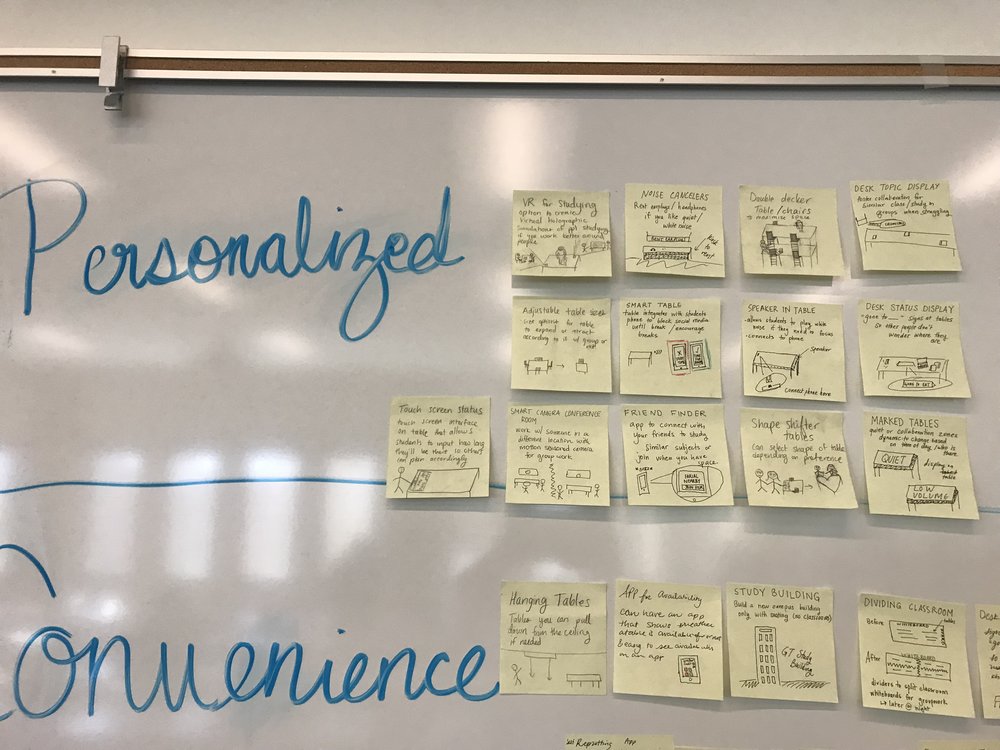 Personalized
VR for Studying
option to create
Virtual holographic
simulations of ppl studying
if you work better around
people
NOISE CANCELERS
Rent earplugs/headphones
if you like quiet/
white noise
RENT EARPLUGS
Double decker
Table/chairs
to maximize space
DESK TOPIC DISPLAY
foster collaboration for
similar class/study in
groups when struggling
Adjustable table sizes
use for table
to expand or retract
according to
SMART TABLE
-table integrates with students
phone to block social media
until break/encourage
breaks
SPEAKER IN TABLE
-allows students to play white
noise if they need to focus
-connects to phone
Speaker
Connect phone here
DESK STATUS DISPLAY
-"gone to ___" signs at tables
so other people don't
wonder where they
are
GONE TO EAT
Touch screen status
touch screen interface
on table that allows
students to input how long
they'll be there so others
can plan accordingly
SMART CAMERA CONFERENCE
ROOM
work w/ someone in a
different location with
motion sensored camera
for group work
FRIEND FINDER
app to connect with
your friends to study
similar subjects or
join when you have
space.
NEARBY
Shape shifter
tables
Can select shape of table
depending on preference
MARKED TABLES
quiet or collaboration zones
dynamic to change based
on time of day/who is there
QUIET
display on
table
LOW
VOLUME
Convenience
Hanging Tables
Tables you can pull
down from the ceiling
if needed
APP for Availability
can have an app
that shows whether
a table is available
& easy to see
on an app
STUDY BUILDING
Build a new campus building
only with seating (no classrooms)
GT Study
Building
DIVIDING CLASSROOM
Before
WHITEBOARD
tables
After
WHITEBOARD
dividers to split classroom
whiteboards for groupwork
↳ later @ night
App